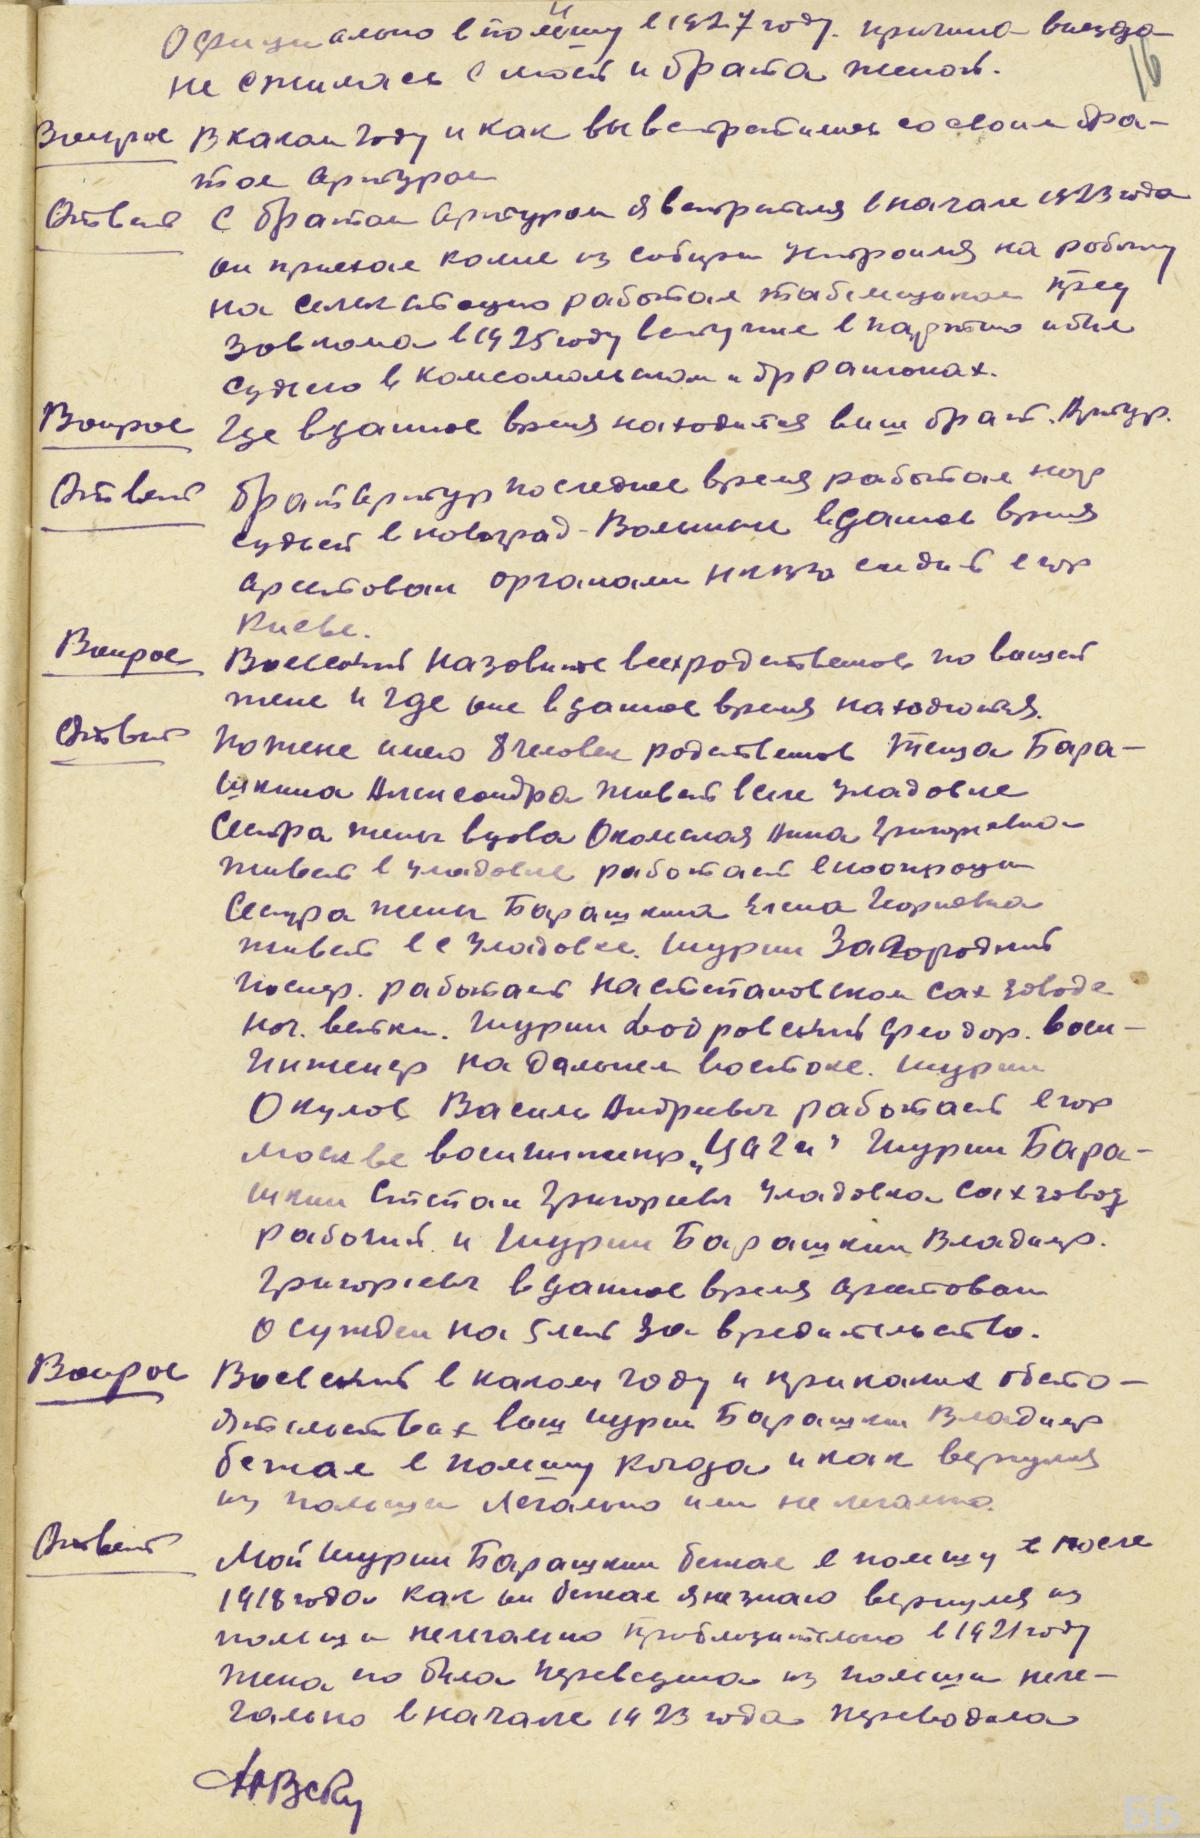 Официально в польшу в 1927 году. причина выезда
не сжилась с мной и брата женой.
16
Вопрос В каком году и как вы встретились со своим бра-
том Артуром
Ответ С братом Артуром я встретился в начале 1923 года
он приехал ко мне из сибири устроился на работу
на селекстанцию работал табельщиком пред
завкома в 1925 году вступил в партию и был
судьею в комсомольском и др районах.
Вопрос Где в данное время находится ваш брат. Артур.
Ответ Брат Артур последнее время работал нар
судьей в новоград-Волынске в данное время
арестован органами НКВД сидит в гор
Киеве.
Вопрос назовите всех родственников по вашей
жене и где они в данное время находются.
Ответ По жене имею 8 человек родственников Теща Бара-
шкина Александра живет в селе Уладовке
Сестра жены вдова Анна Григорьевна
живет в Уладовке работает в кооперации
Сестра жены Барашкина Елена Георгиевна
живет в с Уладовке. Шурин Загородний
работает на степановском сах заводе
нач. ветки. Шурин Феодор. воен-
инженер на дальнем востоке. Шурин
Окулов Василь Андреевич работает в гор
Москве воен инженер „ЦАГИ" Шурин Бара-
шкин Степан Григорьевич Уладовка сахзавод
рабочий и шурин Барашкин Владимир.
Григорьевич в данное время арестован
осужден на 5 лет за вредительство.
Вопрос в каком году и при каких обсто-
ятельствах ваш шурин Барашкин Владимир
бежал в польшу когда и как вернулся
из польши легально или не легально.
Ответ Мой шурин Барашкин бежал в польшу в после
1918 года как он бежал я не знаю вернулся из
польши нелегально приблизительно в 1921 году
жена его была переведена из польши неле-
гально в начале 1923 года переводила